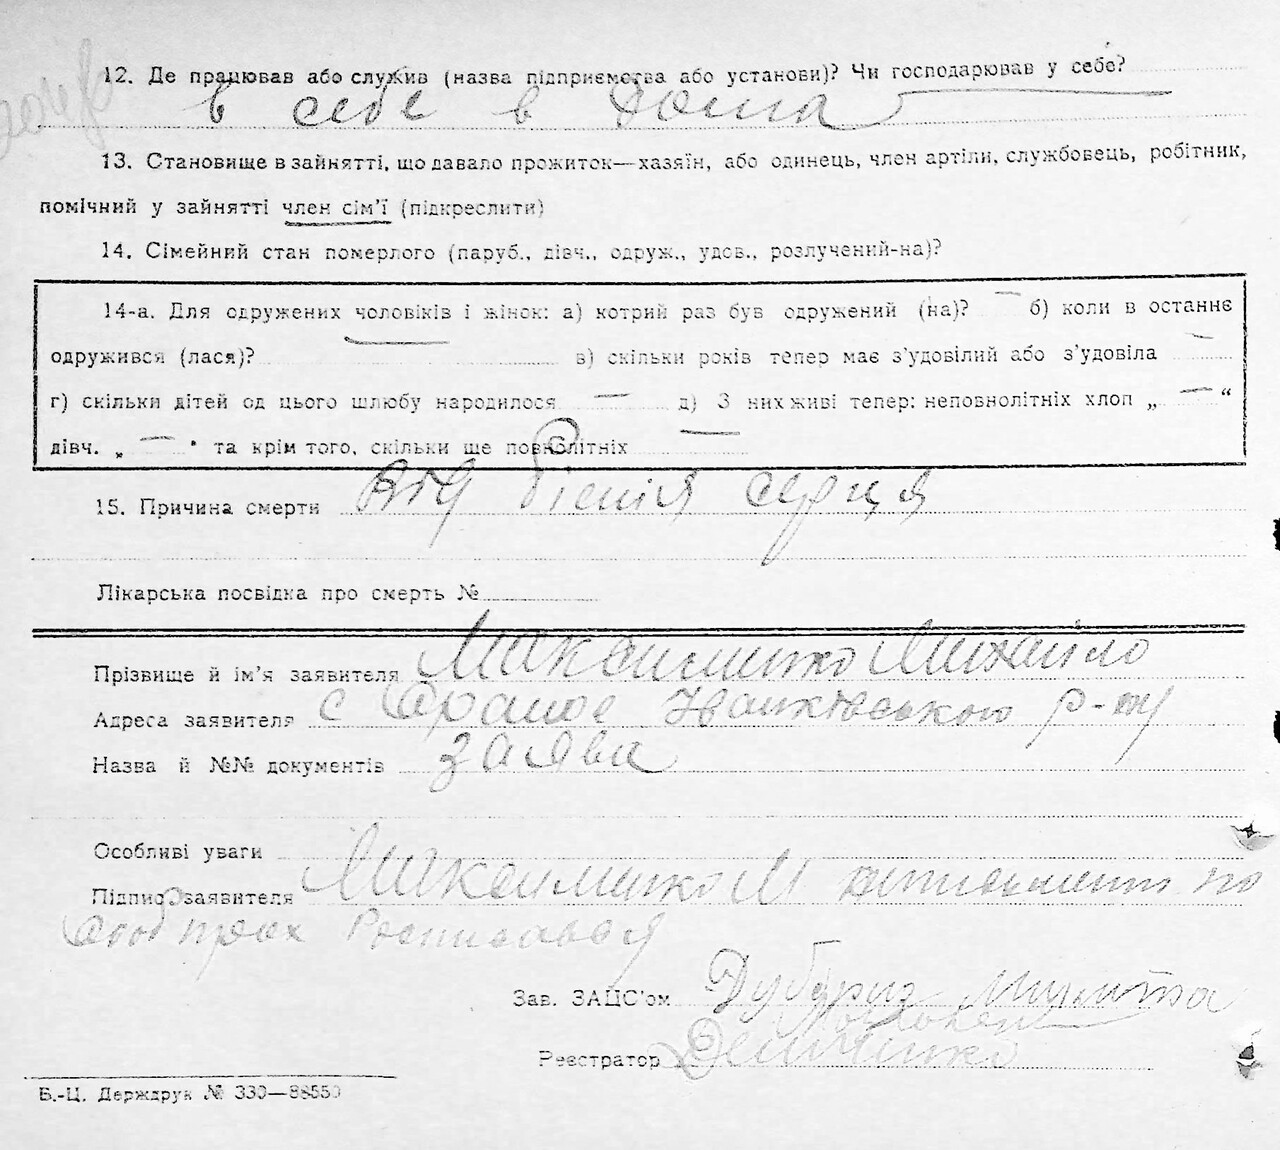 12. Де працював або служив (назва підприємства або установи)? Чи господарював у себе?
в себе в дома
13. Становище в зайнятті, що давало прожиток—хазяїн, або одинець, член артіли, службовець, робітник,
помічний у зайнятті член сім'ї (підкреслити)
14. Сімейний стан померлого (паруб., дівч., одруж., удов., розлучений-на)?
14-а. Для одружених чоловіків і жінок: а) котрий раз був одружений (на)? — б) коли в останнє
одружився (лася)? в) скільки років тепер має з'удовілий або з'удовіла —
г) скільки дітей од цього шлюбу народилося — д) З них живі тепер: неповнолітніх хлоп „ — “
дівч. „ — “ та крім того, скільки ще повнолітніх —
15. Причина смерти від серця
Лікарська посвідка про смерть №
Прізвище й ім'я заявителя Максименко Михайло
Адреса заявителя с Іванківського р-ну
Назва й №№ документів заява
Особливі уваги
Підпис заявителя Максименко М по
Зав. ЗАЦС'ом
Реєстратор Демченко
Б.-Ц. Держдрук № 330—88550